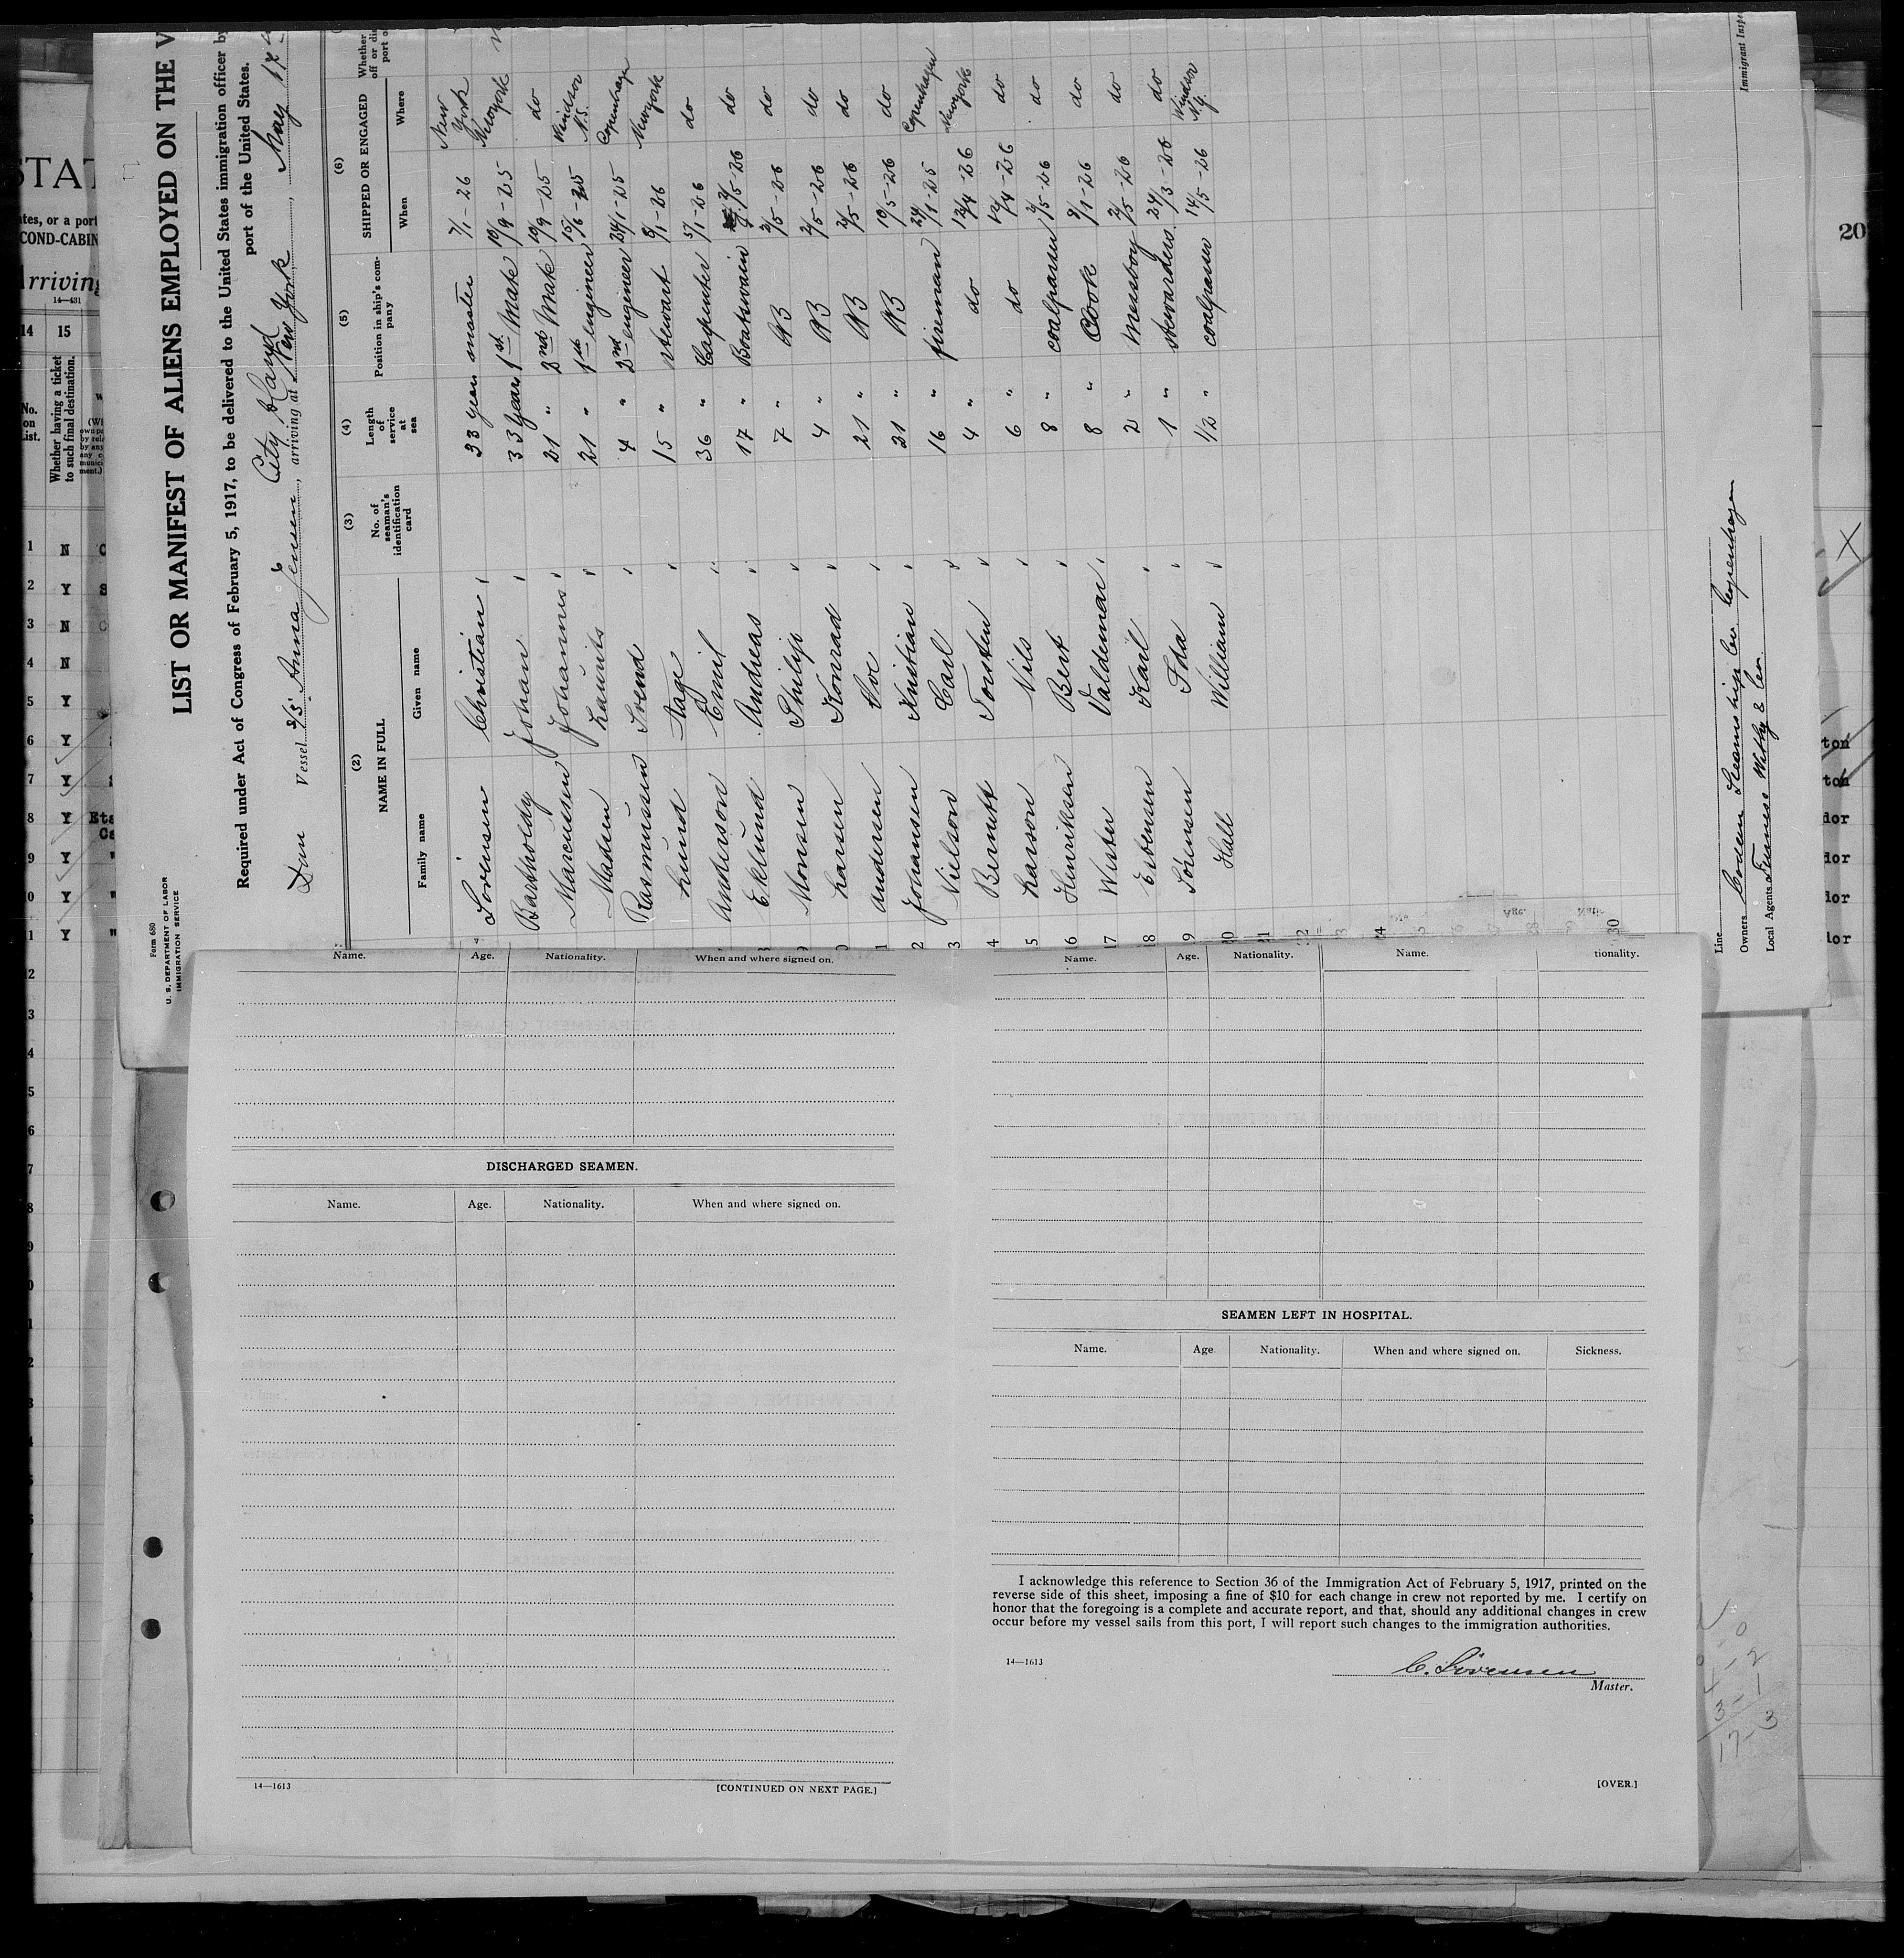 Form 680
U. S. DEPARTMENT OF LABOR
IMMIGRATION SERVICE
LIST OR MANIFEST OF ALIENS EMPLOYED ON THE V
Required under Act of Congress of February 5, 1917, to be delivered to the United States immigration officer by
port of the United States.
Dan Vessel S/S Anna Jensen, arriving at New York, May 17
City Island
(2) NAME IN FULL
Family name Given name
(3) No. of seaman's identification card
(4) Length of service at sea
(5) Position in ship's company
(6) SHIPPED OR ENGAGED
When Where
Whether
Sörensen Christian 33 years master 7/1-26 New York
Bartholdy Johan 33 years 1st Mate 10/9-25 Newyork
Marcussen Johannes 21 " 2nd Mate 10/9-25 do
Madsen Laurits 21 " 1st engineer 15/6-25 Windsor N.S.
Rasmussen Svend 4 " 2nd engineer 24/1-25 Copenhagen
Lund Aage 15 " Stewart 8/1-26 Newyork
Anderson Emil 36 " Carpenter 5/1-26 do
8 Eklund Andreas 17 " Boatswain 2/5-26 do
9 Monsen Philip 7 " AB 2/5-26 do
0 Larsen Konrad 4 " AB 2/5-26 do
1 Andersen Ove 21 " AB 2/5-26 do
2 Johansen Kristian 21 " AB 10/5-26 do
3 Nielson Carl 16 " fireman 24/1-25 Copenhagen
4 Berntt Torsten 4 " do 12/4-26 Newyork
5 Larson Nils 6 " do 12/4-26 do
16 Henriksen Bert 8 " coalpasser 2/5-26 do
17 Wester Valdemar 8 " Cook 9/1-26 do
18 Esbensen Karl 2 " Messboy 2/5-26 do
19 Sörensen Ida 1 " stewardess 24/3-26 do
20 Hall William 1/2 " coalpasser 14/5-26 Windsor
21
22
24
30
Line
Owners Codan Steamship Co. Copenhagen
Local Agents Furness Withy & Co.
Immigrant Inspe
STAT
ates, or a port
COND-CABIN
Arriving
14—431
14 15
No. on List.
Whether having a ticket to such final destination.
1 N
2 Y
3 N
4 N
5 Y
6 Y
7 Y
8 Y
9 Y
0 Y
1 Y
20
ton
ton
dor
dor
dor
dor
Name. Age. Nationality. When and where signed on.
DISCHARGED SEAMEN.
Name. Age. Nationality. When and where signed on.
14—1613
[CONTINUED ON NEXT PAGE.]
Name. Age. Nationality. Name. tionality.
SEAMEN LEFT IN HOSPITAL.
Name. Age. Nationality. When and where signed on. Sickness.
I acknowledge this reference to Section 36 of the Immigration Act of February 5, 1917, printed on the
reverse side of this sheet, imposing a fine of $10 for each change in crew not reported by me. I certify on
honor that the foregoing is a complete and accurate report, and that, should any additional changes in crew
occur before my vessel sails from this port, I will report such changes to the immigration authorities.
14—1613
C. Sörensen
Master.
[OVER.]
3-1
17-3